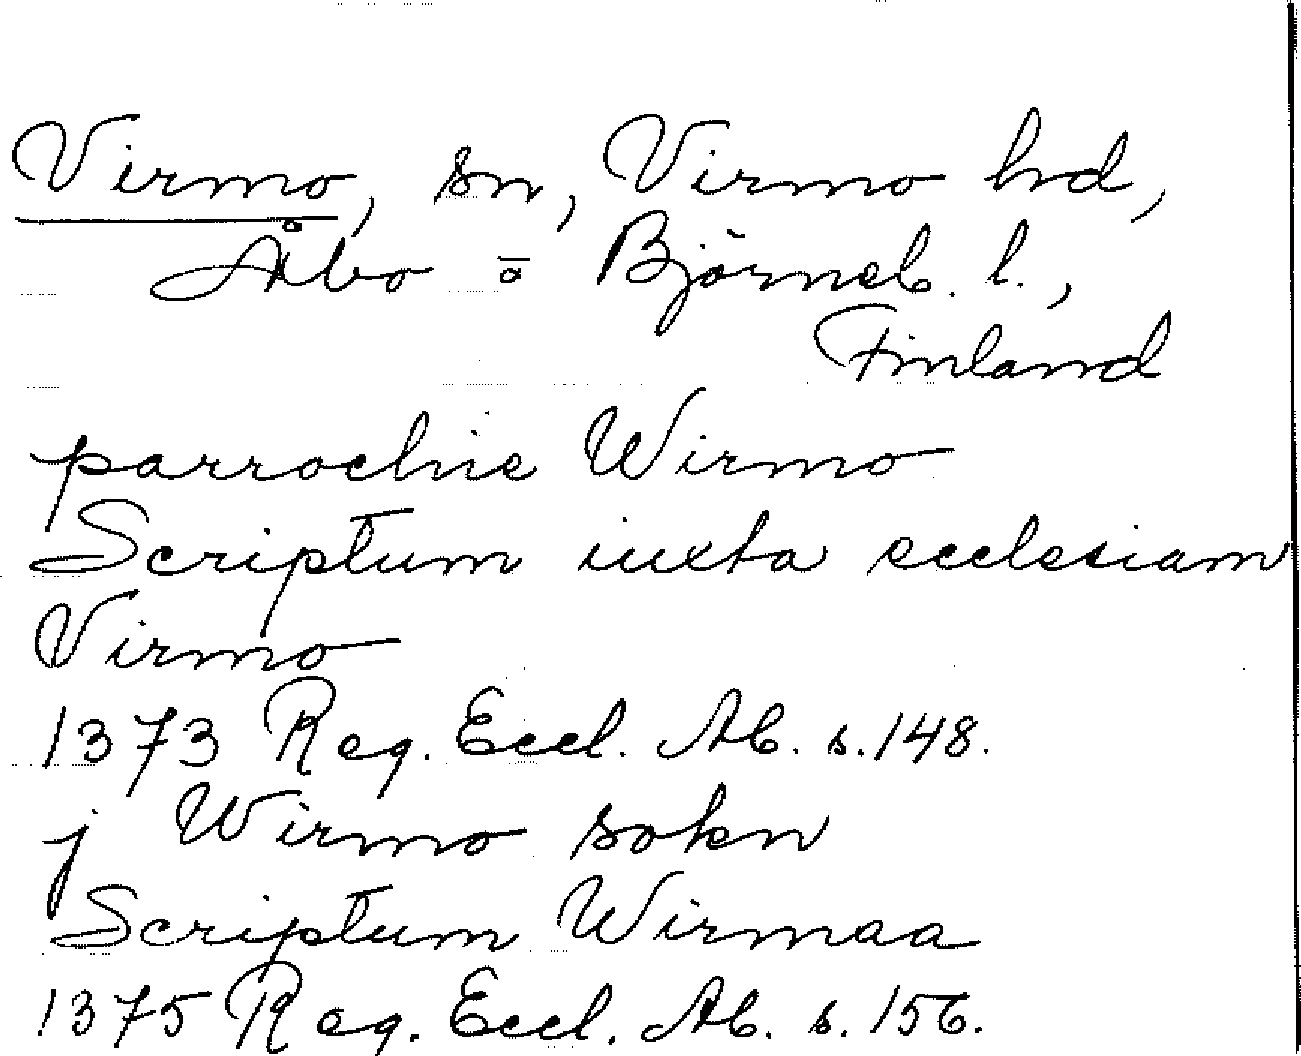 Virmo, sn, Virmo hd,
Åbo o Björneb. l.,
Finland
parrochie Wirmo
Scriptum iuxta ecclesiam
Virmo
1373 Reg. Eccl. Ab. s. 148.
j Wirmo sokn
Scriptum Wirmaa
1375 Reg. Eccl. Ab. s. 156.